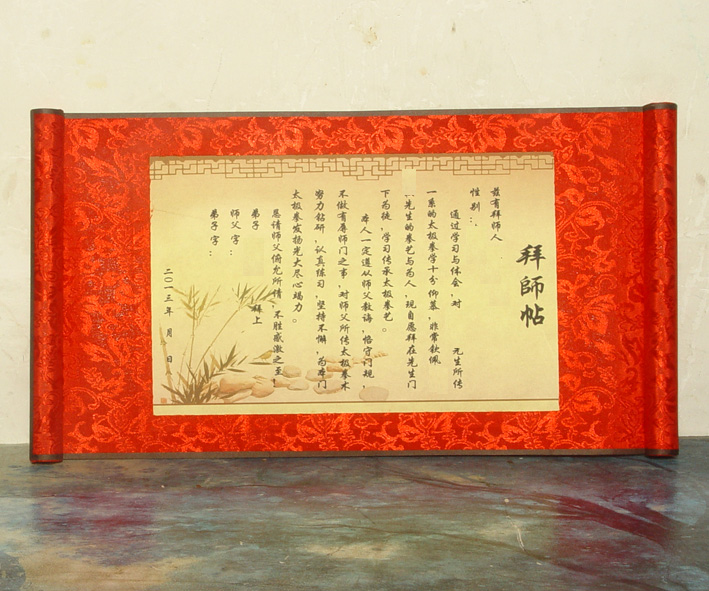 拜師帖
兹有拜师人
性别：.
通过学习与体会，对 先生所传
一系的太极拳学十分仰慕，非常钦佩
先生的拳艺与为人，现自愿拜在先生门
下为徒，学习传承太极拳艺。
本人一定遵从师父教诲，恪守门规，
不做有辱师门之事，对师父所传太极拳术
努力钻研，认真练习，坚持不懈，为本门
太极拳发扬光大尽心竭力。
恳请师父俯允所请，不胜感激之至！
弟子 拜上
师父字：
弟子字：
二〇一三年 月 日